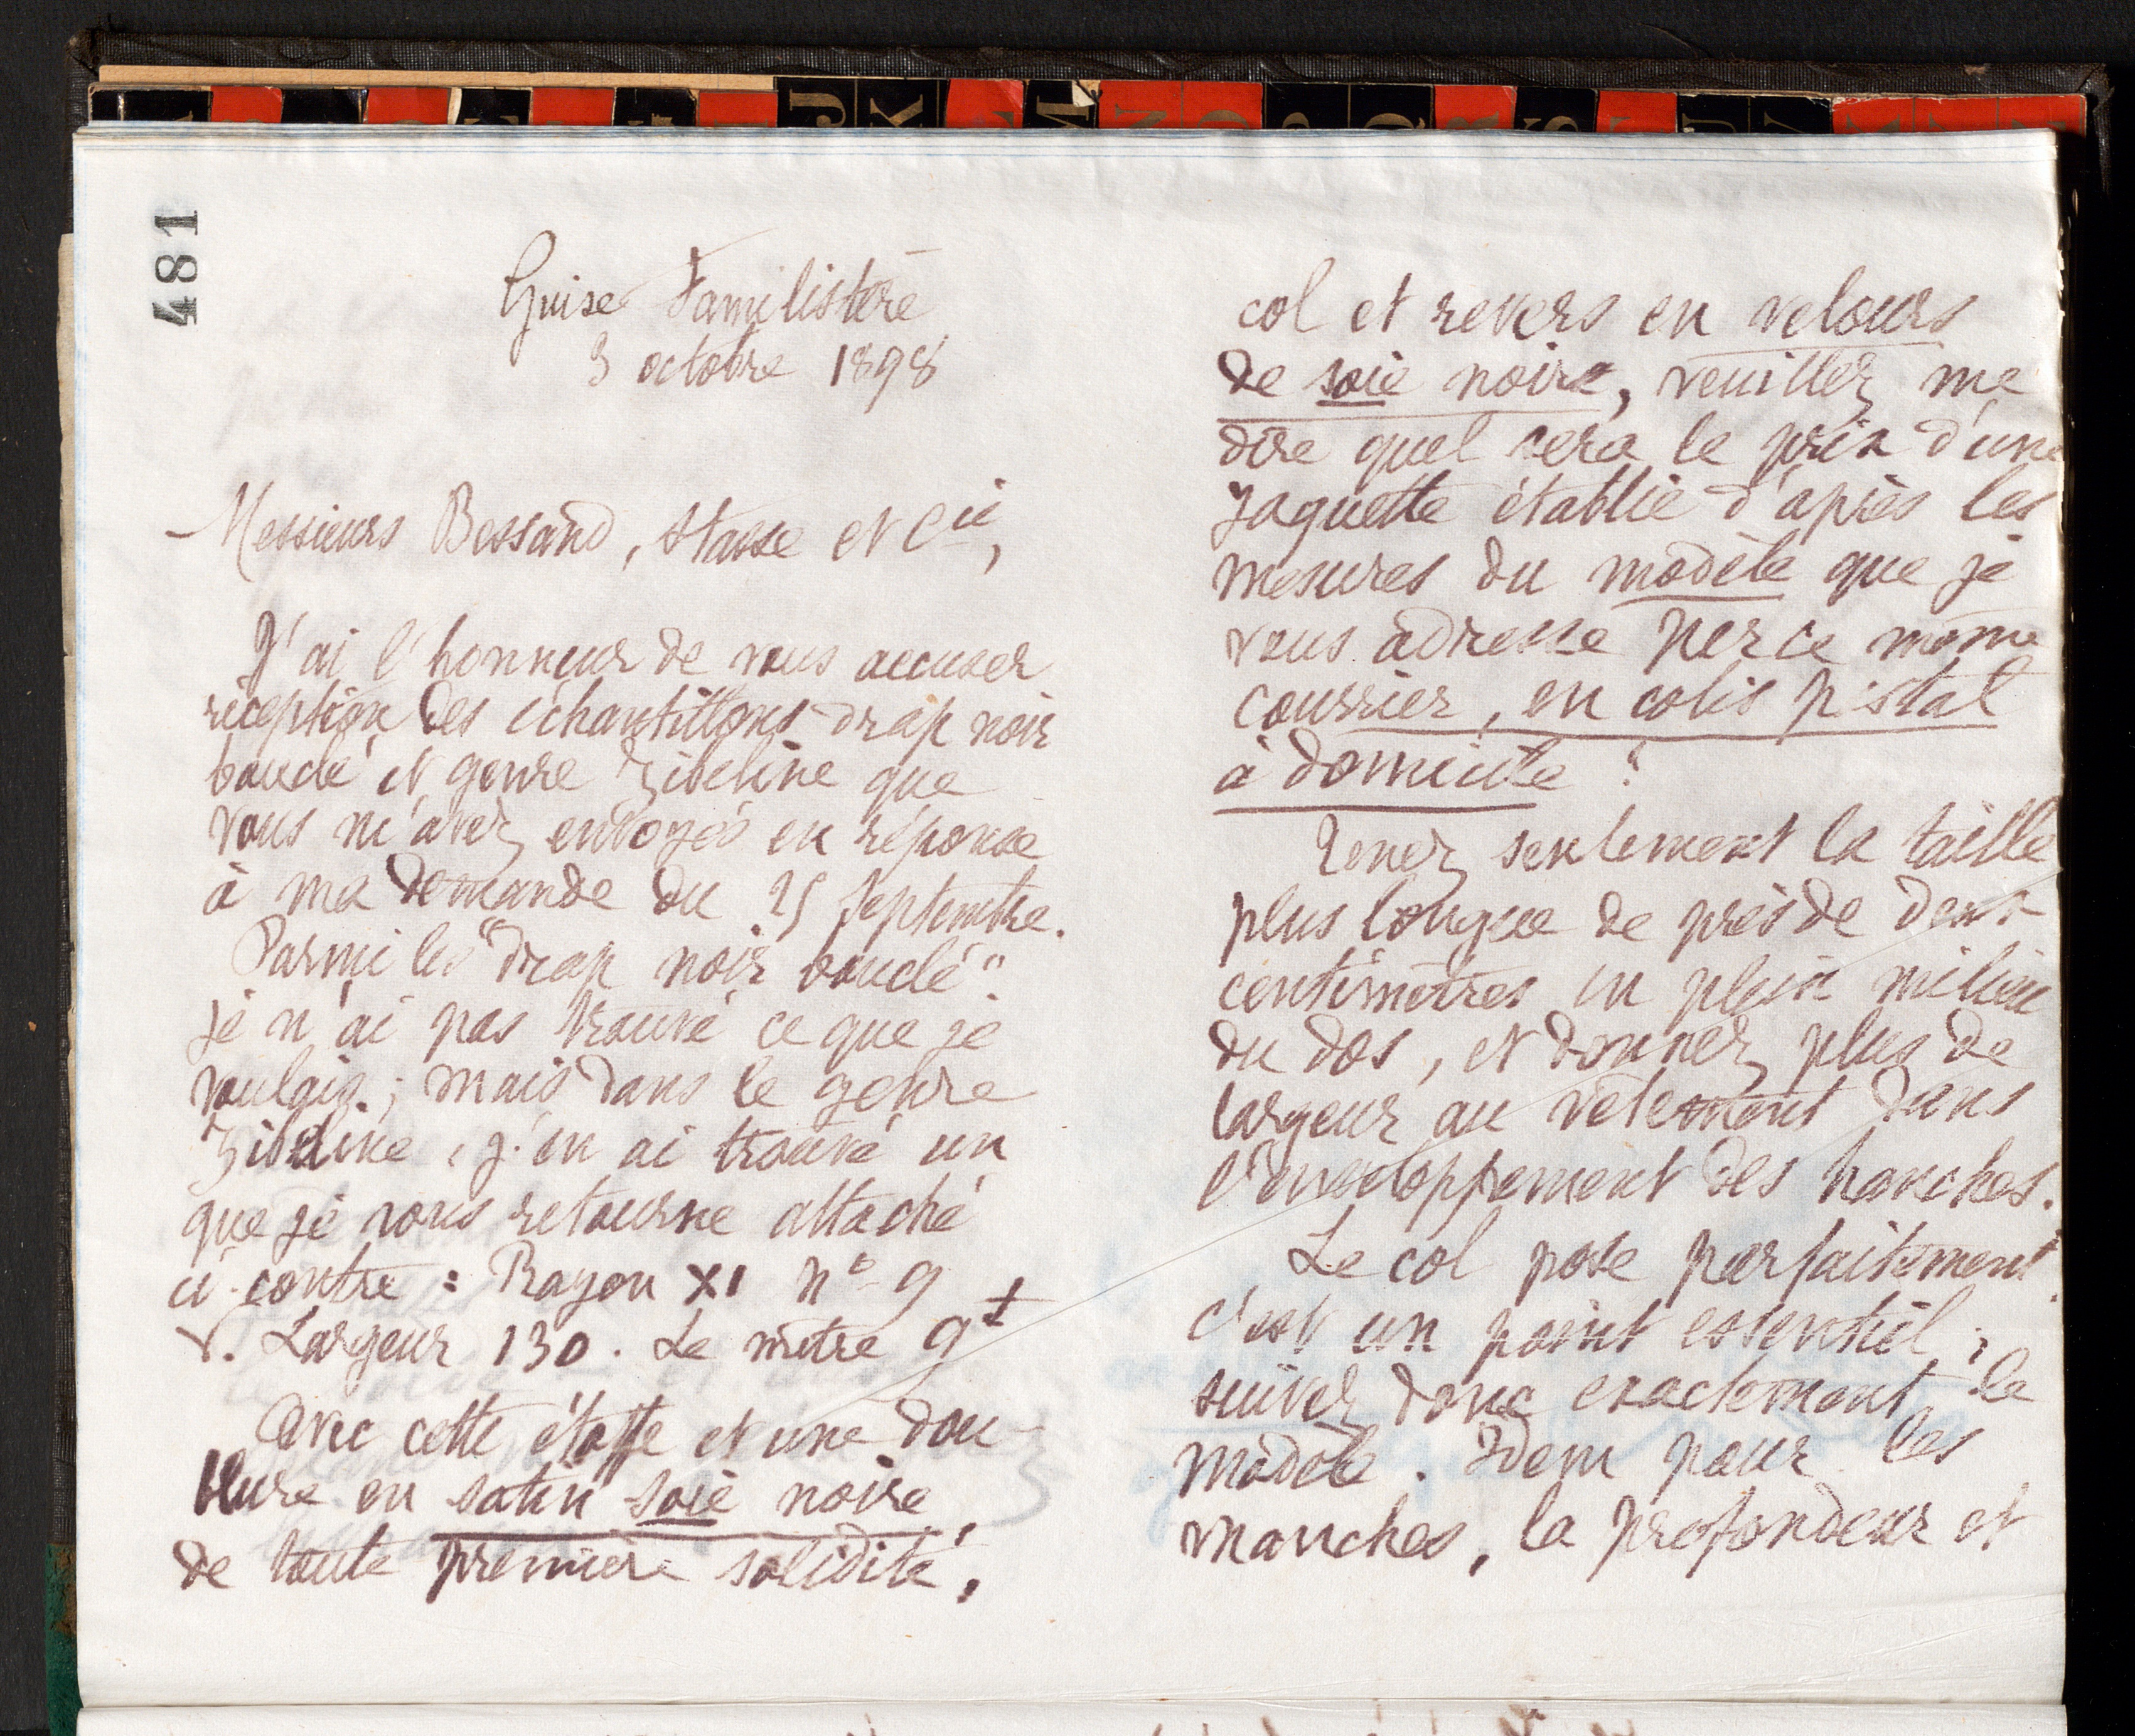 481
Guise Familistère
3 octobre 1898
Messieurs Bessand, Stasse et Cie,
J'ai l'honneur de vous accuser
réception des échantillons drap noir
bouclé et genre Zibeline que
vous m'avez envoyés en réponse
à ma demande du 25 septembre.
Parmi les "drap noir bouclé"
je n'ai pas trouvé ce que je
voulais ; mais dans le genre
Zibeline, j'en ai trouvé un
que je vous retourne attaché
ci-contre : Rayon XI n° 9
v. Largeur 130. Le mètre 9f
Avec cette étoffe et une dou-
blure en satin soie noire,
de toute première solidité,
col et revers en velours
de soie noire, veuillez me
dire quel sera le prix d'une
jaquette établie d'après les
mesures du modèle que je
vous adresse par ce même
courrier, en colis postal
à domicile ?
Tenez seulement la taille
plus longue de près de deux
centimètres en plein milieu
du dos, et donnez plus de
largeur au vêtement dans
l'enveloppement des hanches.
Le col pose parfaitement
c'est un point essentiel ;
suivez donc exactement le
modèle. Idem pour les
manches, la profondeur et
J
K
M
N
O
P
Q
R
S